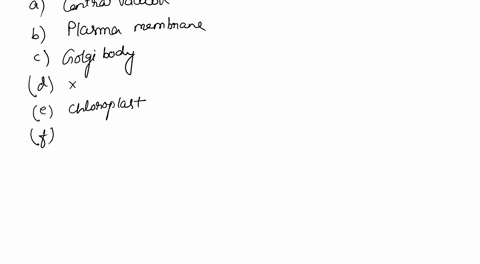 a) Central vacuole
b) Plasma membrane
c) Golgi body
(d) x
(e) chloroplast
(f)